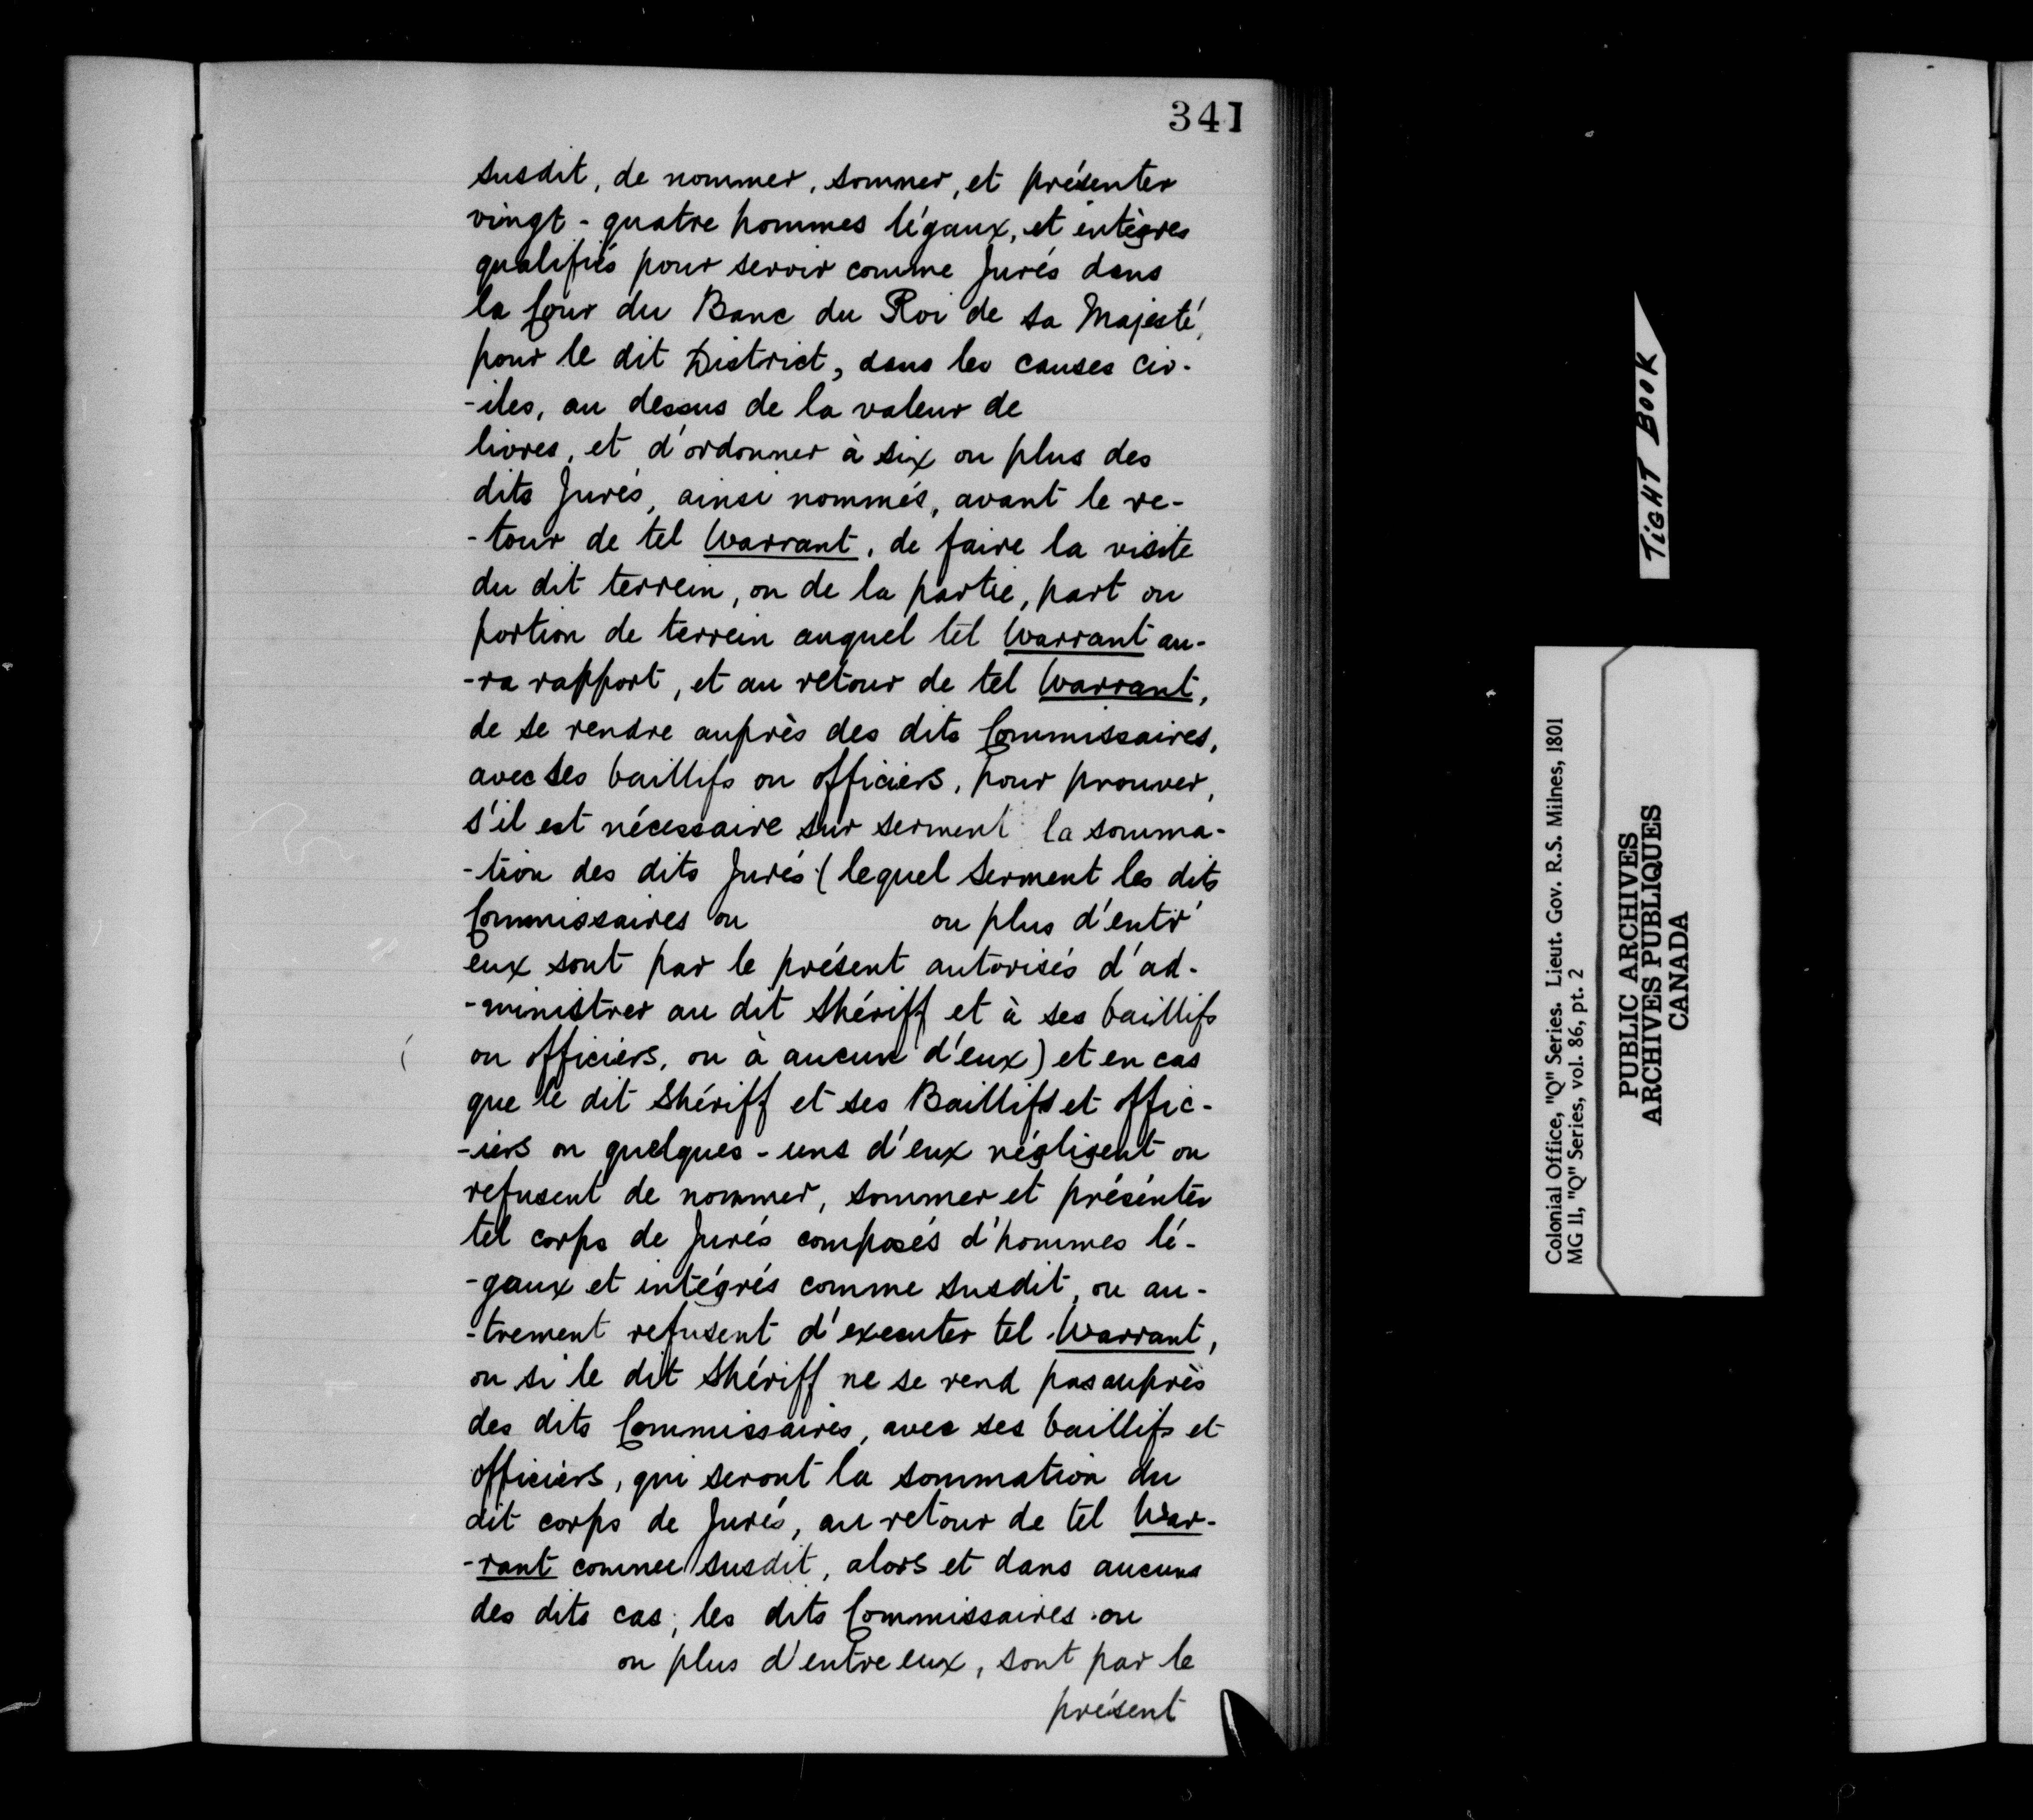 341
susdit, de nommer, sommer, et présenter
vingt-quatre hommes légaux, et intègres
qualifiés pour servir comme Jurés dans
la Cour du Banc du Roi de sa Majesté,
pour le dit District, dans les causes civ-
-iles, au dessus de la valeur de
livres, et d'ordonner à six ou plus des
dits Jurés, ainsi nommés, avant le re-
-tour de tel Warrant, de faire la visite
du dit terrein, ou de la partie, part ou
portion de terrein auquel tel Warrant au-
-ra rapport, et au retour de tel Warrant,
de se rendre auprès des dits Commissaires,
avec ses baillifs ou officiers, pour prouver,
s'il est nécessaire sur serment la somma-
-tion des dits Jurés (lequel serment les dits
Commissaires ou ou plus d'entr'
eux sont par le présent autorisés d'ad-
-ministrer au dit Shériff et à ses baillifs
ou officiers, ou à aucun d'eux) et en cas
que le dit Shériff et ses Baillifs et offic-
-iers ou quelques-uns d'eux négligent ou
refusent de nommer, sommer et présenter
tel corps de Jurés composés d'hommes lé-
-gaux et intégrés comme susdit, ou au-
-trement refusent d'executer tel Warrant,
ou si le dit Shériff ne se rend pas auprès
des dits Commissaires, avec ses baillifs et
officiers, qui seront la sommation du
dit corps de Jurés, au retour de tel War-
-rant comme susdit, alors et dans aucuns
des dits cas, les dits Commissaires ou
ou plus d'entre eux, sont par le
présent
TIGHT BOOK
Colonial Office, "Q" Series. Lieut. Gov. R.S. Milnes, 1801
MG 11, "Q" Series, vol. 86, pt. 2
PUBLIC ARCHIVES
ARCHIVES PUBLIQUES
CANADA